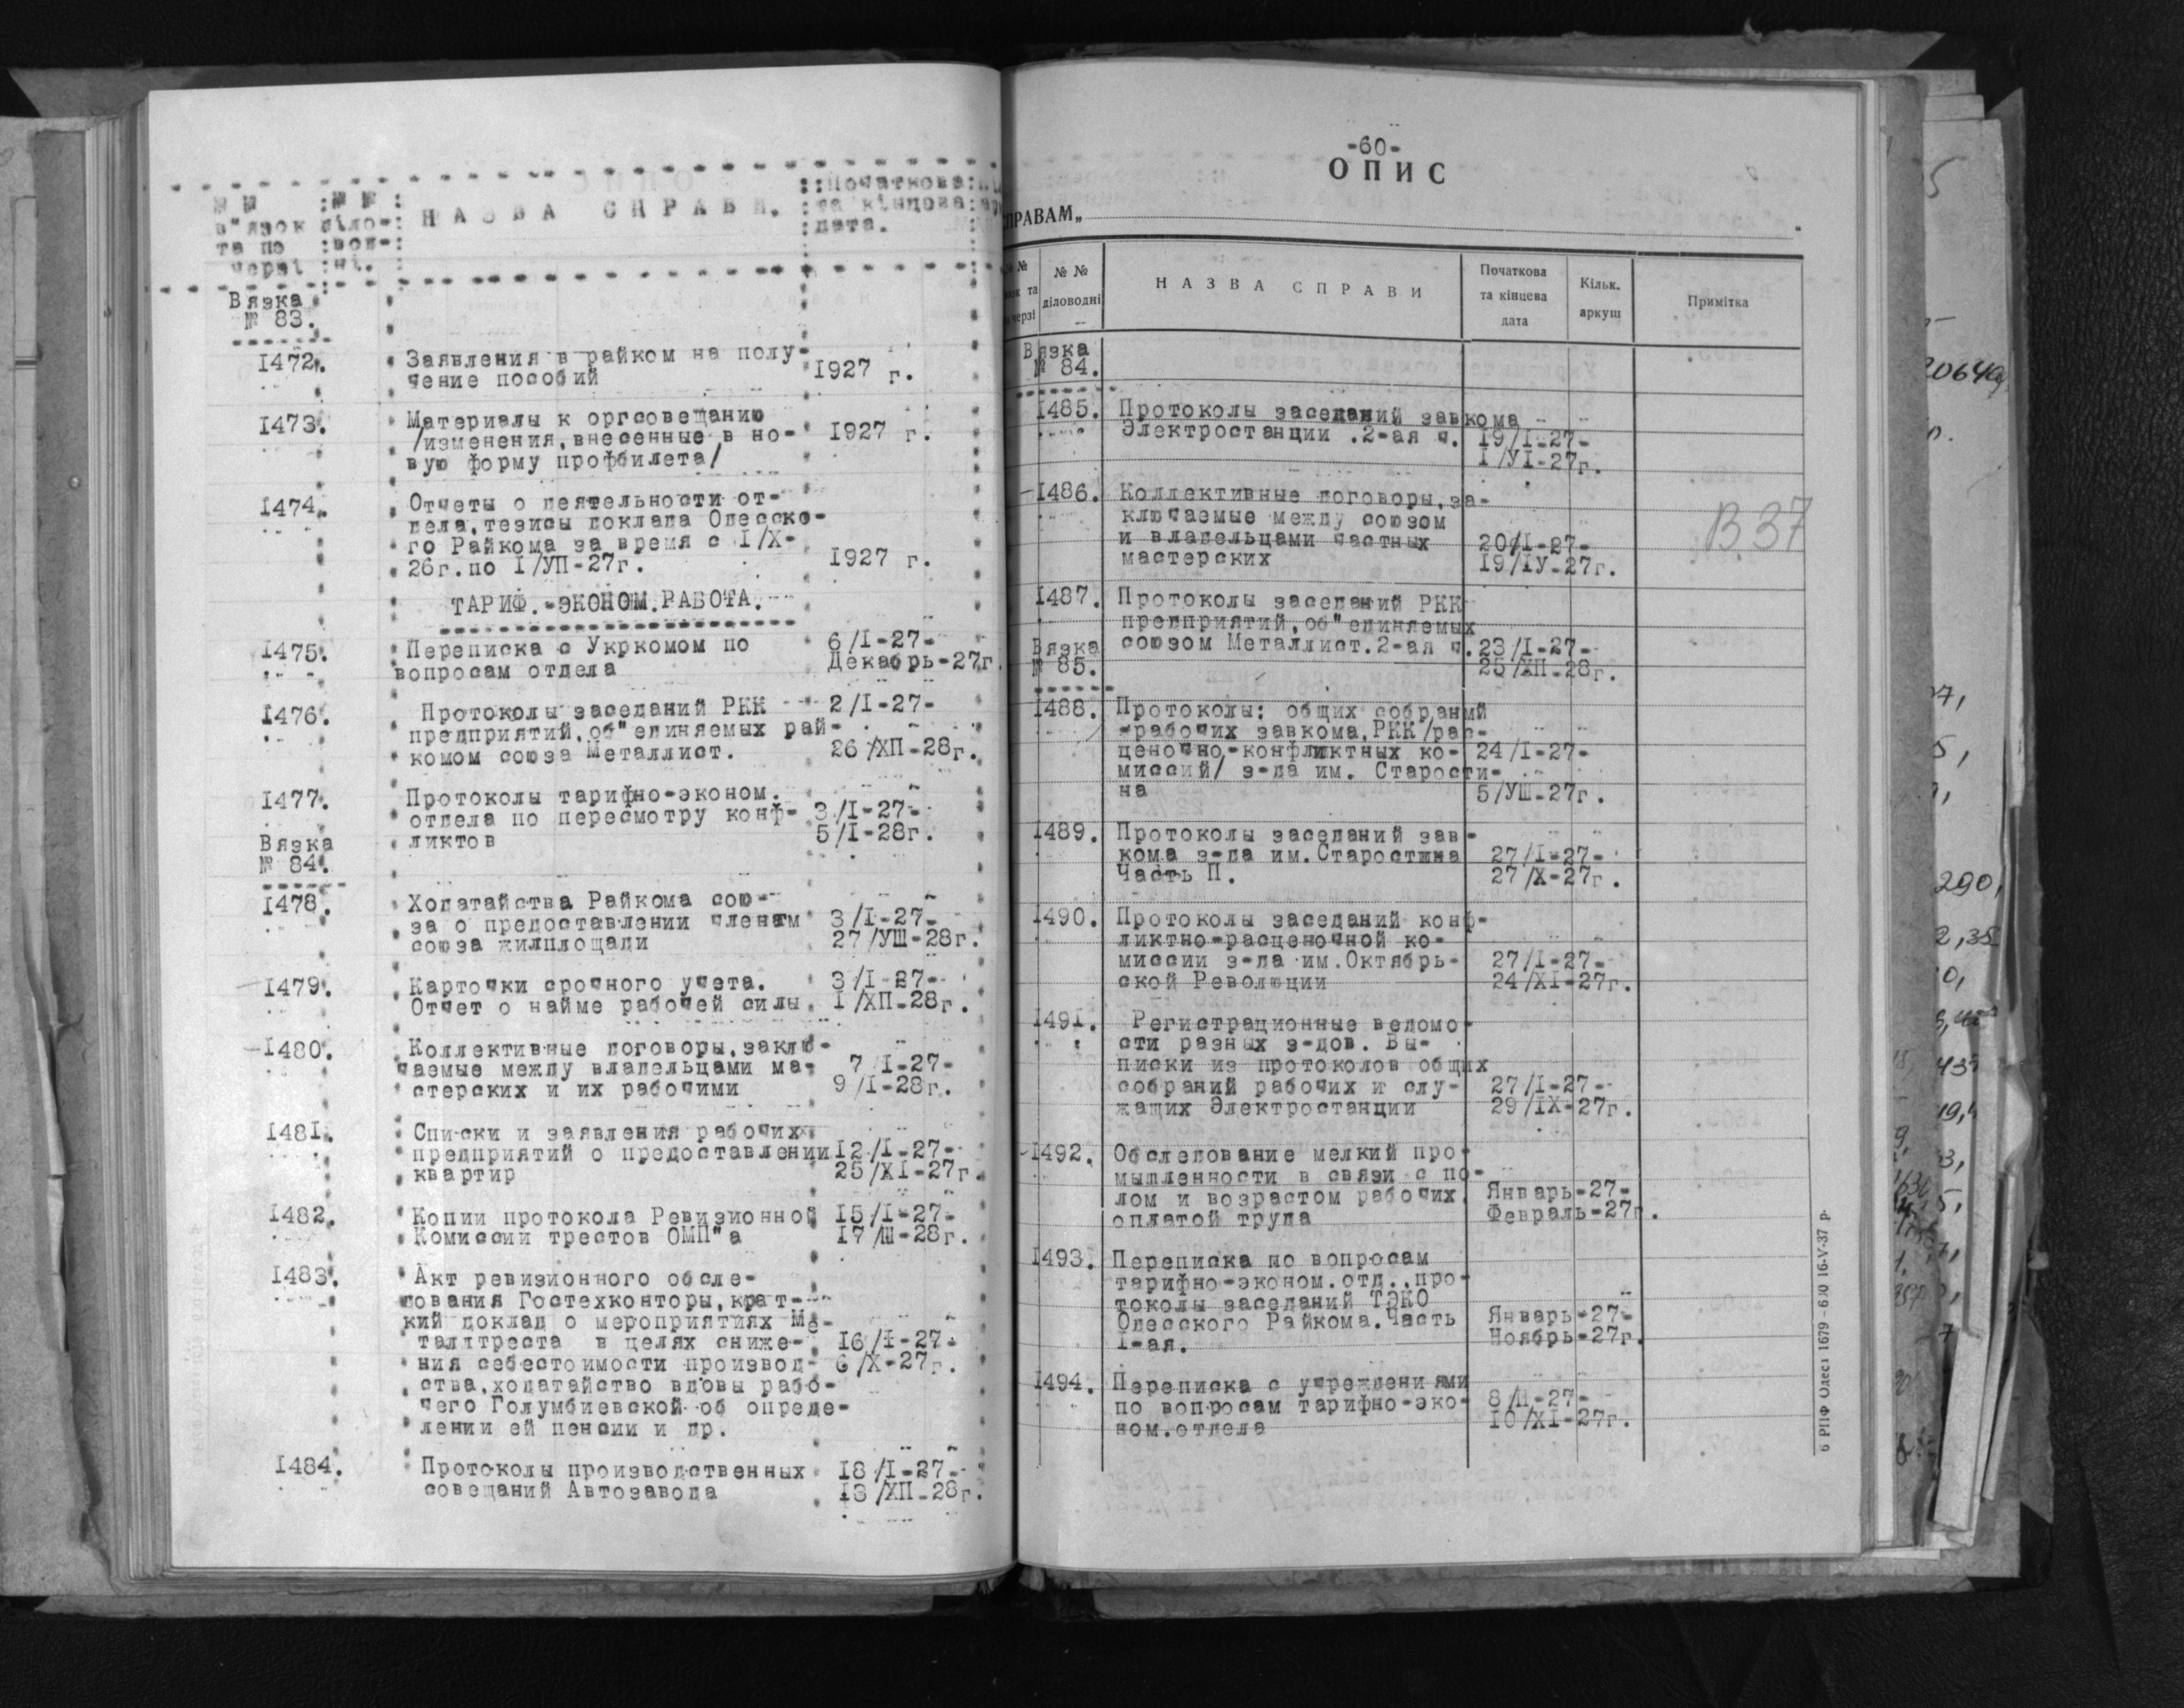 № № : № № : НАЗВА СПРАВИ. : Початкова
в"язок : діло- : та кінцева
та по : вод- : дата.
черзі : ні.
Вязка
№ 83.
1472. Заявления в райком на полу-
чение пособий 1927 г.
1473. Материалы к оргсовещанию
/изменения, внесенные в но- 1927 г.
вую форму профбилета/
1474. Отчеты о деятельности от-
дела, тезисы доклада Одесско-
го Райкома за время с I/X-
26г. по I/УП-27г. 1927 г.
ТАРИФ.-ЭКОНОМ.РАБОТА.
1475. Переписка с Укркомом по 6/I-27-
вопросам отдела Декабрь-27г.
1476. Протоколы заседаний РКК 2/I-27-
предприятий, об"единяемых рай-
комом союза Металлист. 26/ХП-28г.
1477. Протоколы тарифно-эконом.
отдела по пересмотру конф- 3/I-27-
ликтов 5/I-28г.
Вязка
№ 84.
1478. Ходатайства Райкома сою-
за о предоставлении членам 3/I-27-
союза жилплощади 27/УШ-28г.
1479. Карточки срочного учета. 3/I-27-
Отчет о найме рабочей силы. I/ХП-28г.
1480. Коллективные договоры, заклю-
чаемые между владельцами ма- 7/I-27-
стерских и их рабочими 9/I-28г.
1481. Списки и заявления рабочих
предприятий о предоставлении 12/I-27-
квартир 25/XI-27г.
1482. Копии протокола Ревизионной 15/I-27-
Комиссии трестов ОМП"а 17/Ш-28г.
1483. Акт ревизионного обсле-
дования Гостехконторы, крат-
кий доклад о мероприятиях Ме-
таллтреста в целях сниже- 16/I-27-
ния себестоимости производ- 6/X-27г.
ства, ходатайство вдовы рабо-
чего Голумбиевской об опреде-
лении ей пенсии и др.
1484. Протоколы производственных 18/I-27-
совещаний Автозавода 13/ХП-28г.
-60-
ОПИС
СПРАВАМ„
№ № № № НАЗВА СПРАВИ Початкова Кільк. Примітка
та діловодні та кінцева аркуш
черзі дата
Вязка
№ 84.
1485. Протоколы заседаний завкома
Электростанции .2-ая ч. 19/I-27-
I/УI-27г.
1486. Коллективные договоры, за-
ключаемые между союзом
и владельцами частных 20/I-27-
мастерских 19/IУ-27г.
В.37
1487. Протоколы заседаний РКК
предприятий, об"единяемых
союзом Металлист.2-ая ч. 23/I-27-
25/ХП-28г.
Вязка
№ 85.
1488. Протоколы: общих собраний
рабочих завкома, РКК /рас-
ценочно-конфликтных ко- 24/I-27-
миссий/ з-да им. Старости-
на 5/УШ-27г.
1489. Протоколы заседаний зав-
кома з-да им.Старостина 27/I-27-
Часть П. 27/X-27г.
1490. Протоколы заседаний конф-
ликтно-расценочной ко-
миссии з-да им.Октябрь- 27/I-27-
ской Революции 24/XI-27г.
1491. Регистрационные ведомо-
сти разных з-дов. Вы-
писки из протоколов общих
собраний рабочих и слу- 27/I-27-
жащих Электростанции 29/IX-27г.
1492. Обследование мелкий про-
мышленности в связи с по-
лом и возрастом рабочих, Январь-27-
оплатой труда Февраль-27г.
1493. Переписка по вопросам
тарифно-эконом.отд., про-
токолы заседаний ТЭКО
Одесского Райкома.Часть Январь-27-
I-ая. Ноябрь-27г.
1494. Переписка с учреждениями
по вопросам тарифно-эко- 8/П-27-
ном.отдела 10/XI-27г.
6 РПФ Одеса 1679 - 600 16-V-37 р.
2064
290,
2,35